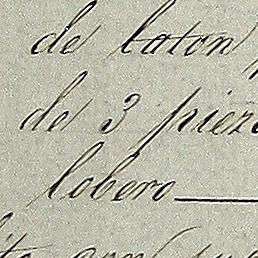 de laton
de 3 piez
lobero